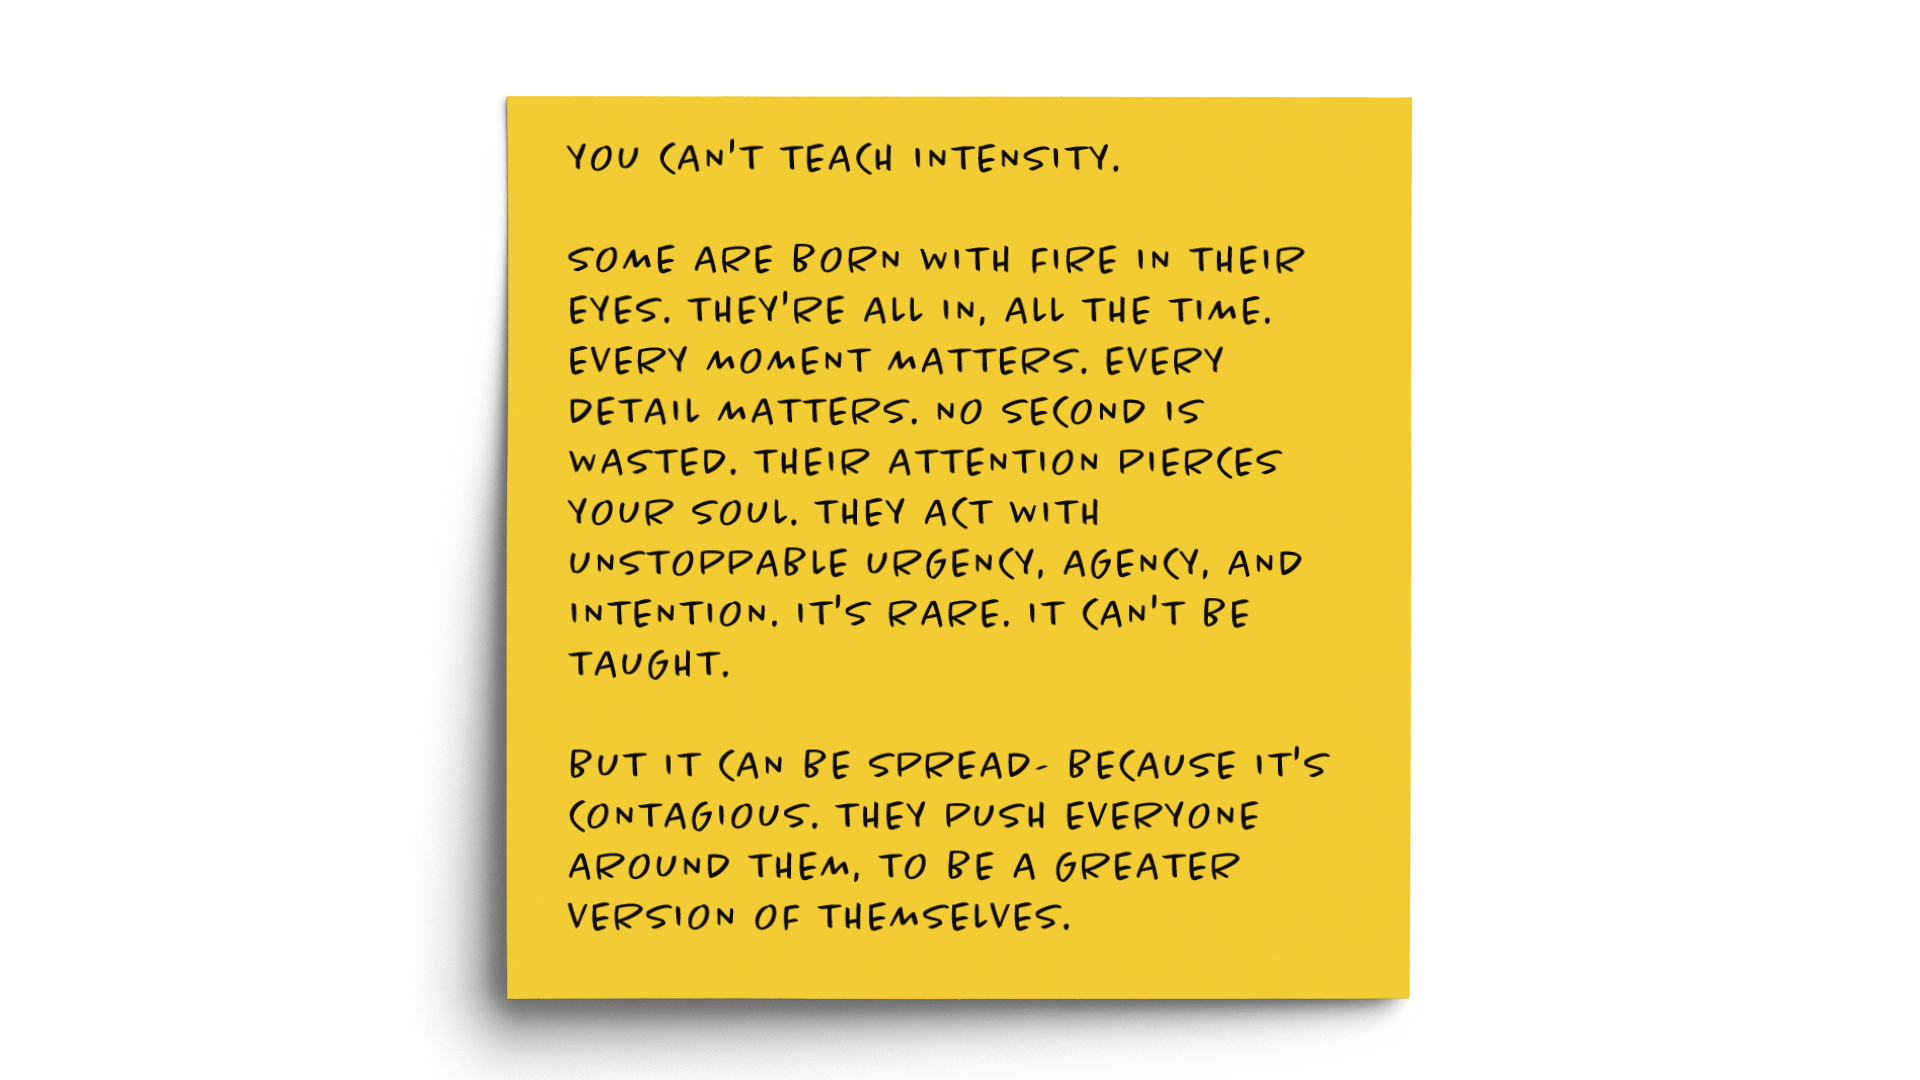 YOU CAN'T TEACH INTENSITY.
SOME ARE BORN WITH FIRE IN THEIR
EYES. THEY'RE ALL IN, ALL THE TIME.
EVERY MOMENT MATTERS. EVERY
DETAIL MATTERS. NO SECOND IS
WASTED. THEIR ATTENTION PIERCES
YOUR SOUL. THEY ACT WITH
UNSTOPPABLE URGENCY, AGENCY, AND
INTENTION. IT'S RARE. IT CAN'T BE
TAUGHT.
BUT IT CAN BE SPREAD- BECAUSE IT'S
CONTAGIOUS. THEY PUSH EVERYONE
AROUND THEM, TO BE A GREATER
VERSION OF THEMSELVES.